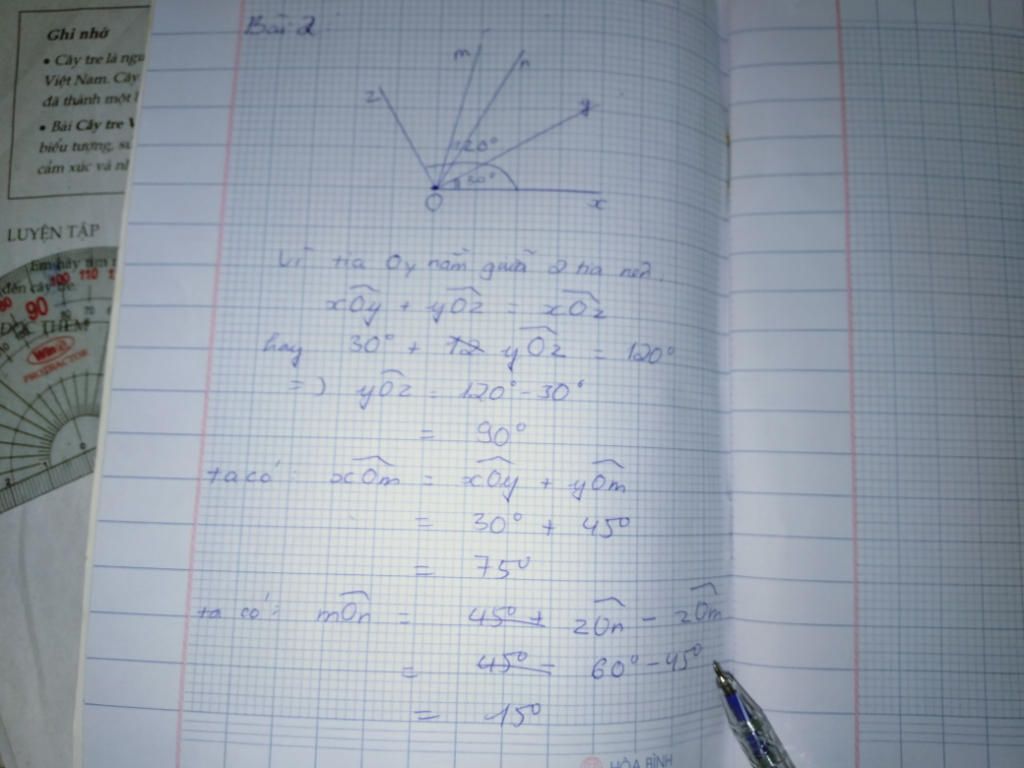 Ghi nhớ
• Cây tre là ngư
Việt Nam. Cây
đã thành một
• Bài Cây tre V
biểu tượng, su
cảm xúc và nh
LUYỆN TẬP
Em hãy tìm
đến cây tre.
ĐỌC THÊM
100 110
90
80 70
PROTRACTOR
0
Bài 2:
m n
z y
120°
30°
O x
Vì tia Oy nằm giữa 2 tia nên.
xÔy + yÔz = xÔz
hay 30° + 12 yÔz = 120°
=) yÔz = 120° - 30°
= 90°
ta có: xÔm = xÔy + yÔm
= 30° + 45°
= 75°
ta có: mÔn = 45° + zÔn - zÔm
= 45° - 60° - 45°
= 15°
HÒA BÌNH